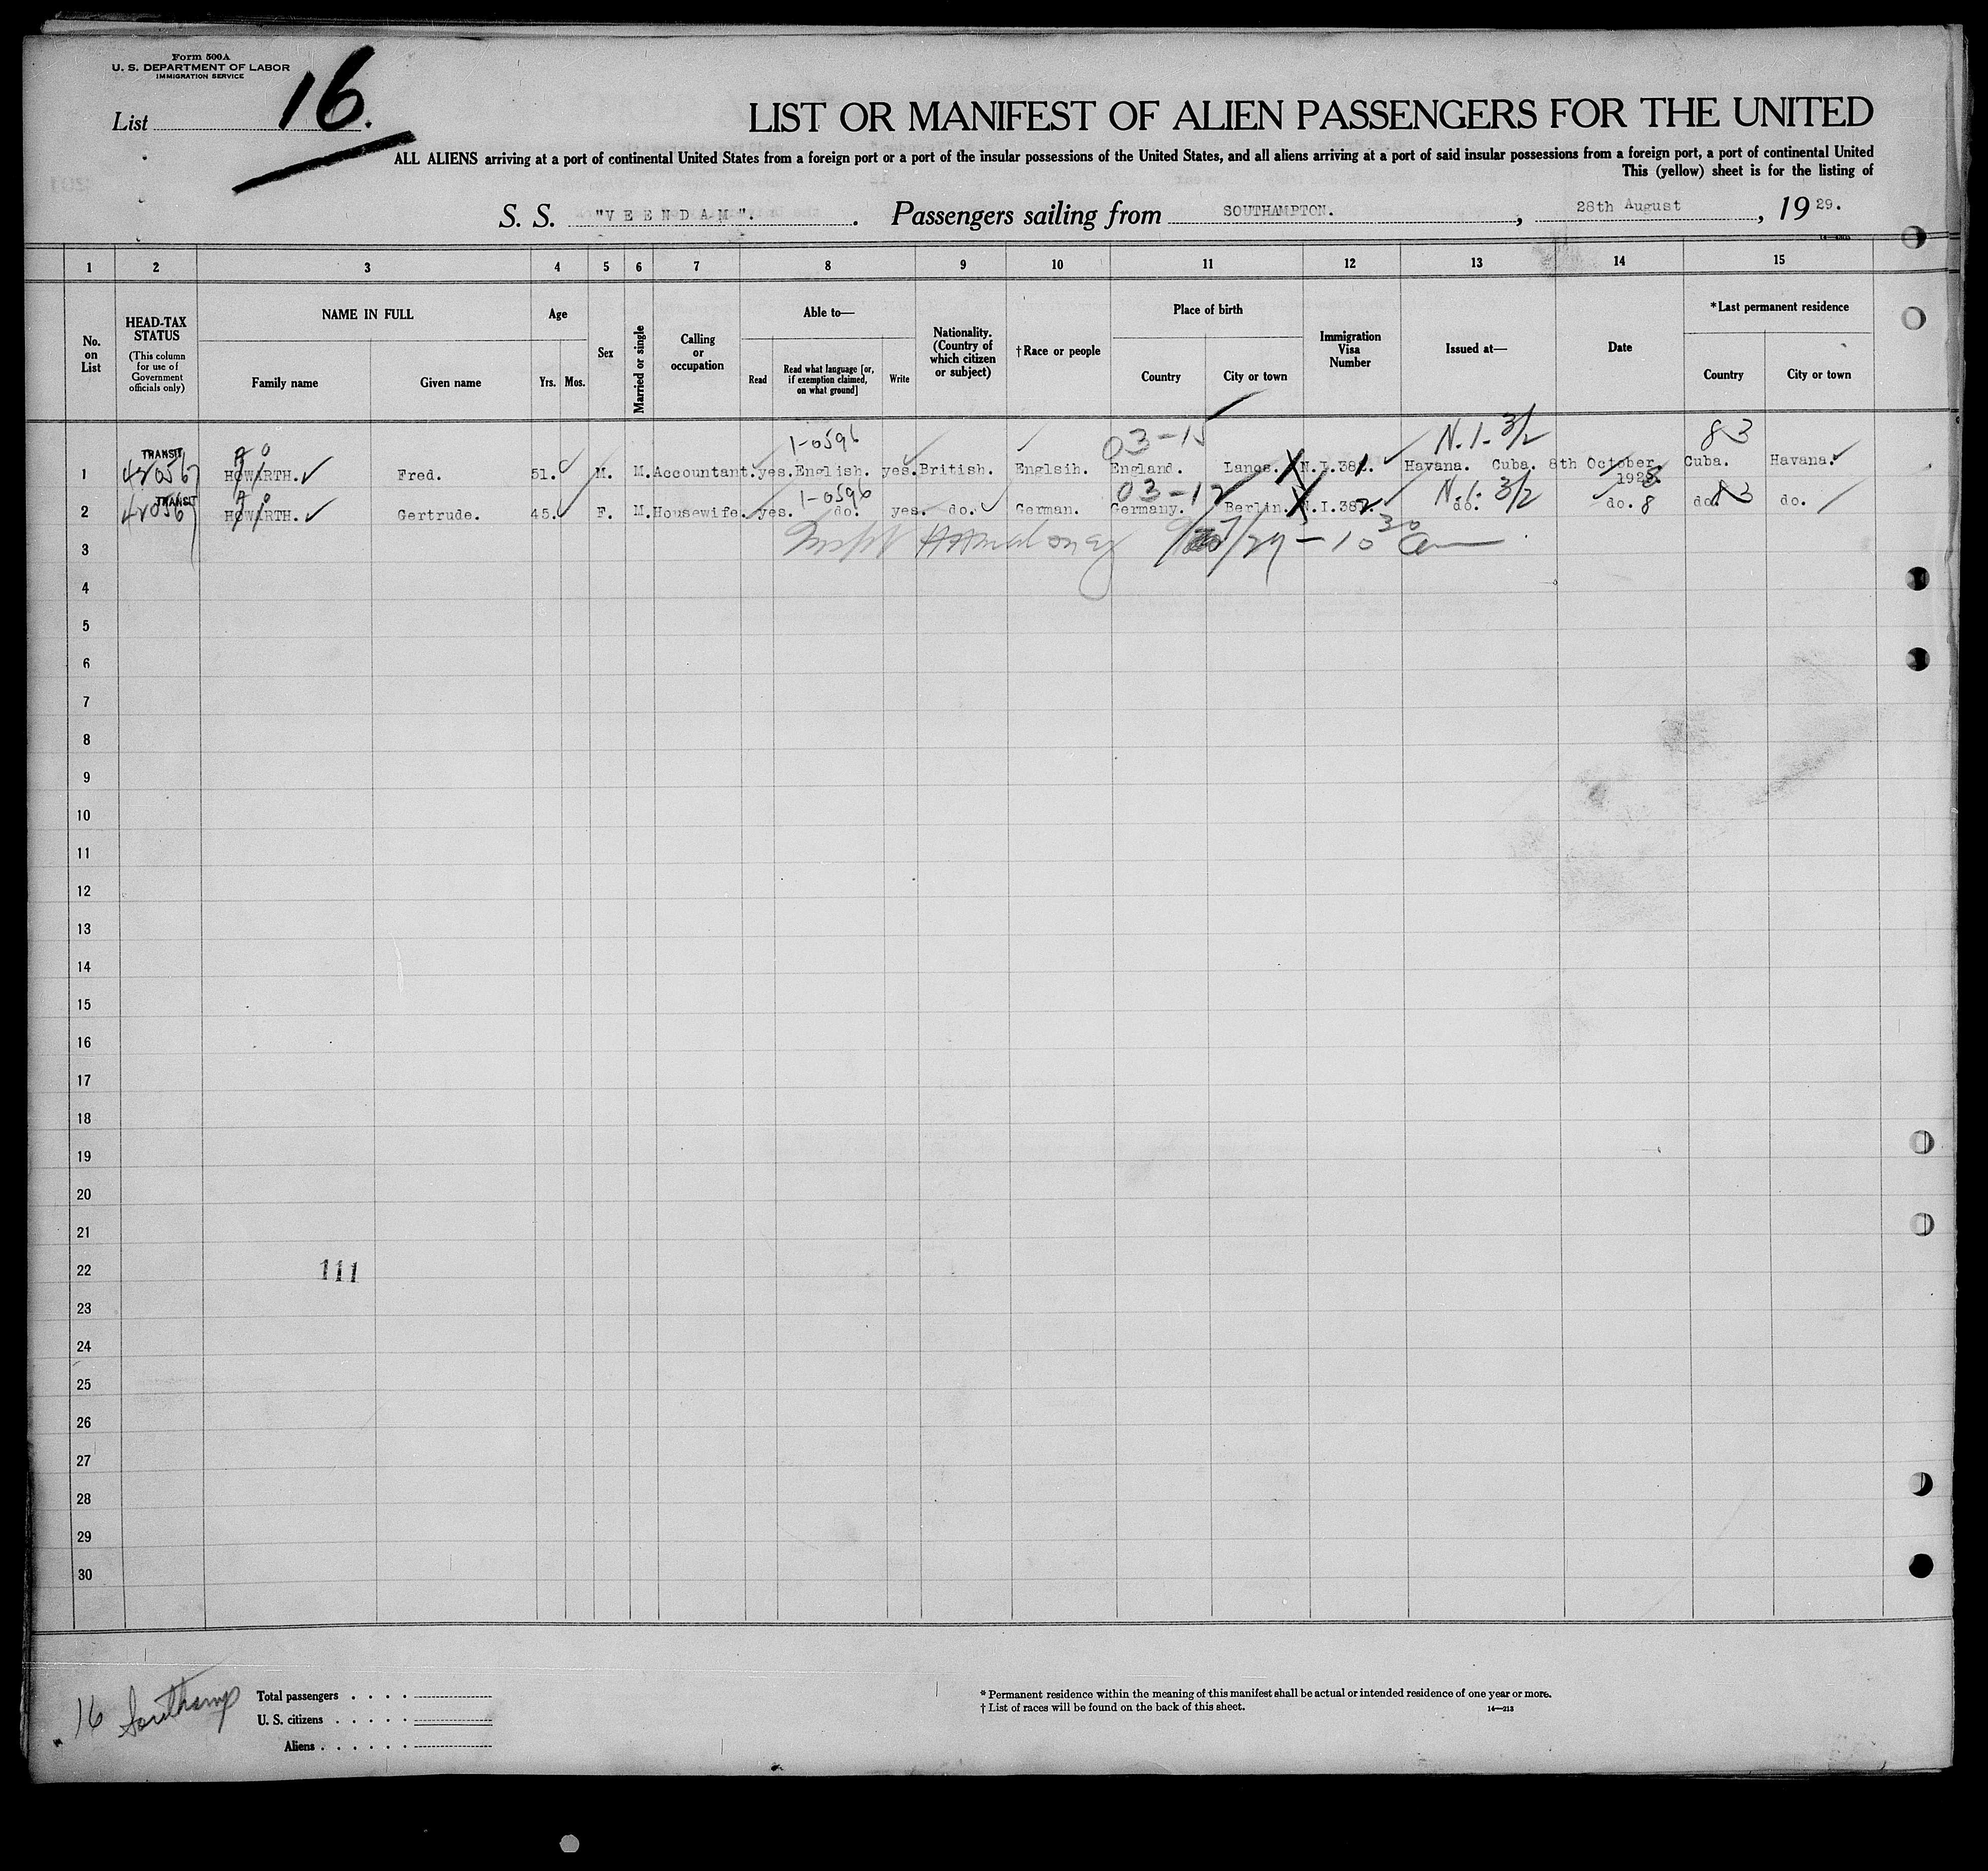 Form 500A
U. S. DEPARTMENT OF LABOR
IMMIGRATION SERVICE
List 16.
LIST OR MANIFEST OF ALIEN PASSENGERS FOR THE UNITED
ALL ALIENS arriving at a port of continental United States from a foreign port or a port of the insular possessions of the United States, and all aliens arriving at a port of said insular possessions from a foreign port, a port of continental United
This (yellow) sheet is for the listing of
S. S. "VEENDAM". Passengers sailing from SOUTHAMPTON. , 28th August , 19 29.
1 2 3 4 5 6 7 8 9 10 11 12 13 14 15
No. on List
HEAD-TAX STATUS (This column for use of Government officials only)
NAME IN FULL
Family name Given name
Age
Yrs. Mos.
Sex
Married or single
Calling or occupation
Able to—
Read
Read what language [or, if exemption claimed, on what ground]
Write
Nationality. (Country of which citizen or subject)
† Race or people
Place of birth
Country City or town
Immigration Visa Number
Issued at—
Date
* Last permanent residence
Country City or town
1-0596 03-15 N.I. 3/2 83
TRANSIT
1 HOWARTH. Fred. 51. M. M. Accountant. yes. English. yes. British. Englsih. England. Lancs. N.I.381. Havana. Cuba. 8th October 1928. Cuba. Havana.
TRANSIT 1-0596 03-12 N.I. 3/2 83
2 HOWARTH. Gertrude. 45. F. M. Housewife. yes. do. yes. do. German. Germany. Berlin. N.I.382. do. do. 8 do. do.
3 /29 - 10 30 am
4
5
6
7
8
9
10
11
12
13
14
15
16
17
18
19
20
21
22 111
23
24
25
26
27
28
29
30
16 Southamp
Total passengers . . . .
U. S. citizens . . . . .
Aliens . . . . . .
* Permanent residence within the meaning of this manifest shall be actual or intended residence of one year or more.
† List of races will be found on the back of this sheet. 14—213